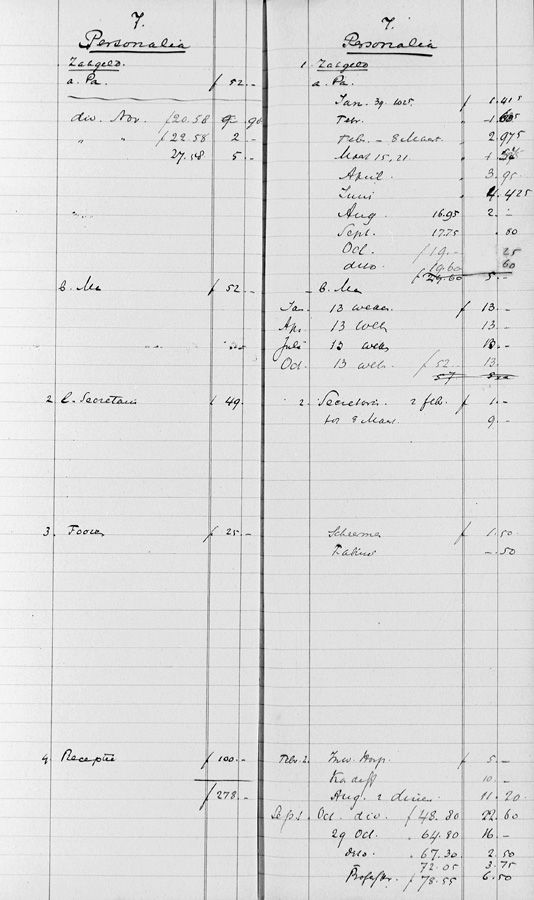 7.
Personalia
Zakgeld.
a. Pa. f 52.-
div. Nov. f 20.58
" " f 22.58 2.-
27.58 5.-
b. Ma f 52.-
2. Secretaris f 49.
3. f 25.-
4. Receptie f 100.-
f 278.-
7.
Personalia
1. Zakgeld
a. Pa.
Jan. f 1.415
Febr.
Febr. - 8 Maart 2.975
Maart 15, 21
April 3.95
Juni 4.425
Aug 16.95 2.-
Sept. 17.75 .80
Oct. f 19.- 25
dito 19.60 60
f 24.60 5.-
b. Ma
Jan. 13 weken f 13.-
Apr. 13 wek 13.-
Juli 13 wek 13.-
Oct. 13 wek. f 52. 13.
57
2. Secretaris 2 feb. f 1.-
tot 8 Maart 9.-
f 1.50
-.50
Febr. 2. f 5.-
10.-
Aug. 2 diner 11.20
Sept. Oct. div. f 48.80 22.60
29 Oct. 64.80 16.-
dito. 67.30 2.50
72.05 3.75
f 78.55 6.50